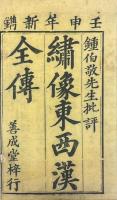 壬申年新鐫
鍾伯敬先生批評
繡像東西漢
全傳
善成堂梓行